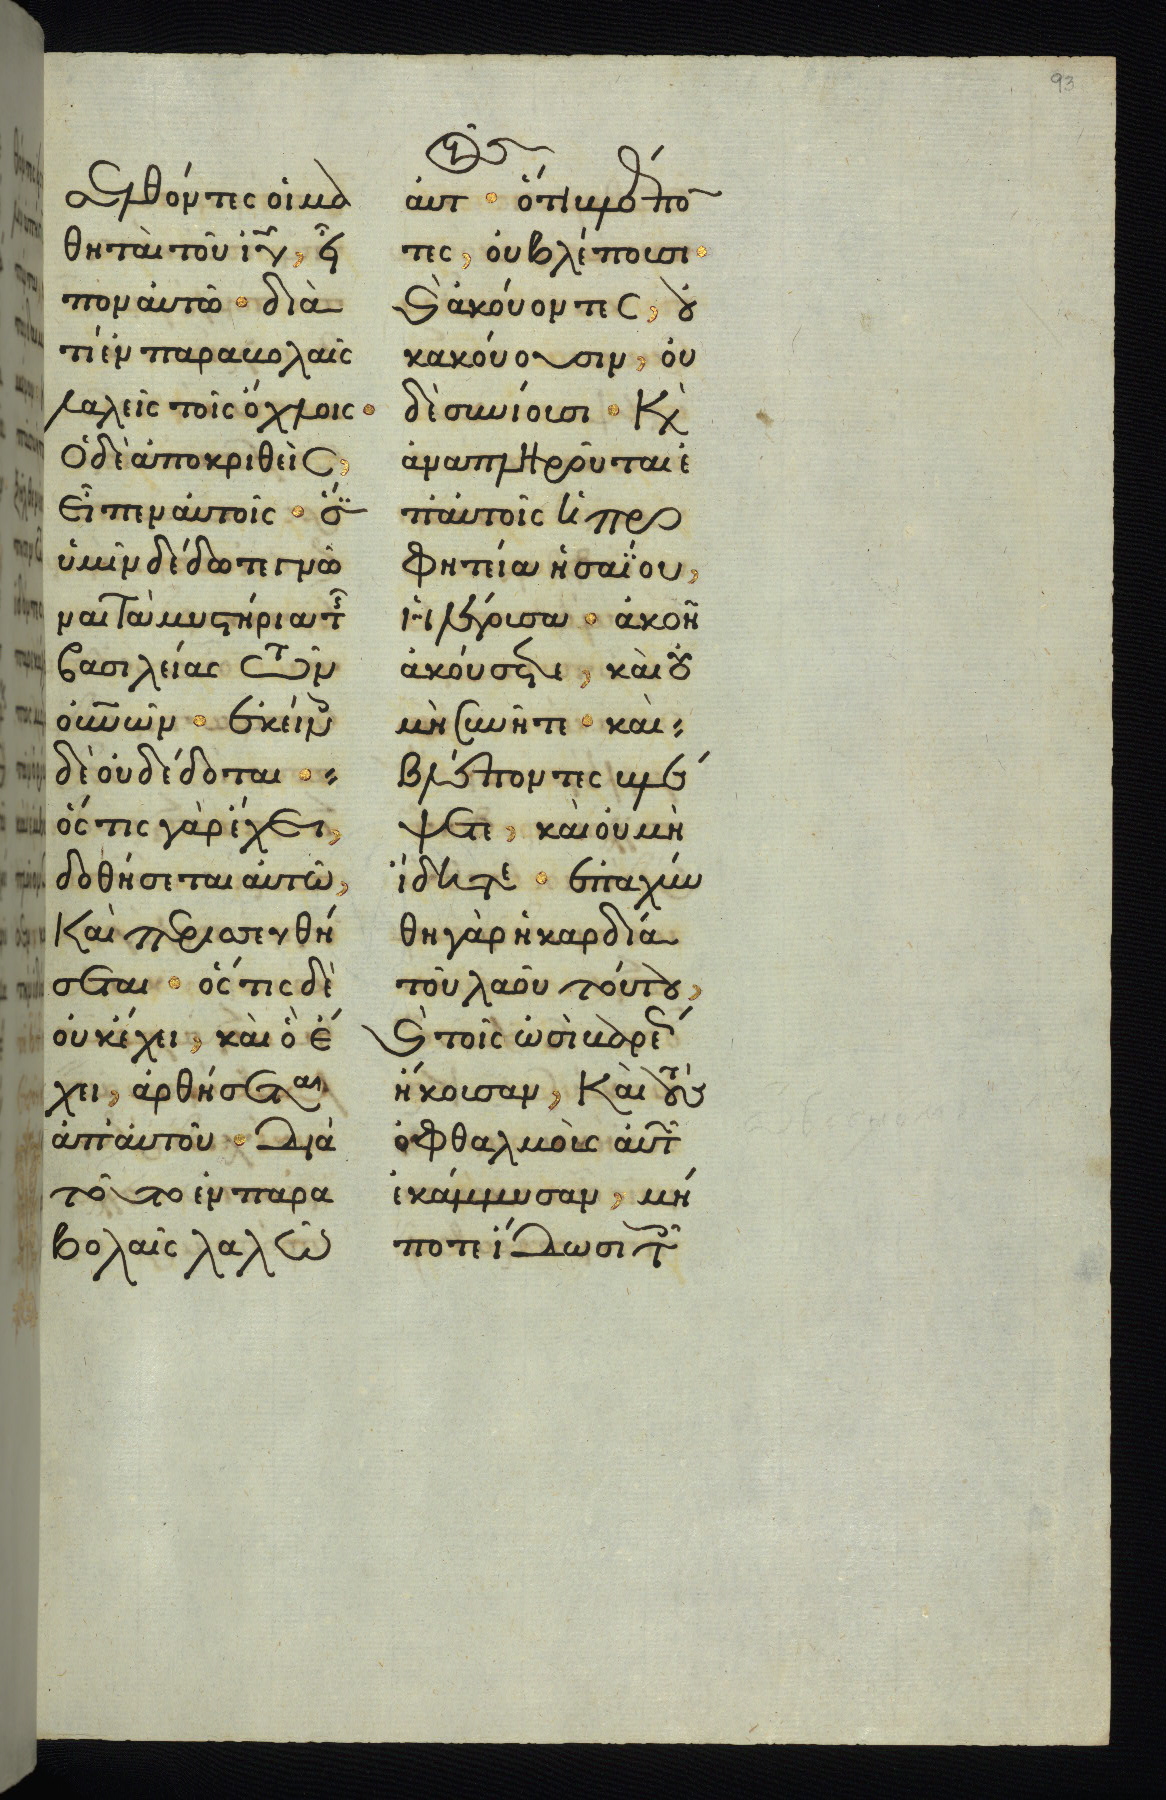 93
Ελθόντες οἱ μα
θηταὶ τοῦ ἰῦ, εἶ
πον αὐτῶ · διὰ
τί ἐν παραβολαῖς
λαλεῖς τοῖς ὄχλοις ·
Ὁ δὲ ἀποκριθεὶς,
εἶπεν αὐτοῖς · ὅτι
ὑμῖν δέδοται γνῶ
ναι τὰ μυστήρια τῆς
βασιλείας τῶν
οὐν̅ῶν · ἐκείνοις
δὲ οὐ δέδοται ·
ὅστις γὰρ ἔχει,
δοθήσεται αὐτῶ,
Καὶ περισσευθή
σεται · ὅστις δὲ
οὐκ ἔχει, καὶ ὃ ἔ
χει, ἀρθήσεται
ἀπ' αὐτοῦ · Διὰ
τοῦτο ἐν παρα
βολαῖς λαλῶ
αὐτ · ὅτι βλέπον
τες, οὐ βλέπουσι ·
Καὶ ἀκούοντες, οὐ
κ ἀκούουσιν, οὐ
δὲ συνίουσι · Καὶ
ἀναπληροῦται ἐ
π' αὐτοῖς ἡ προ
φητεία ἡσαΐου,
ἡ λέγουσα · ἀκοῆ
ἀκούσετε, καὶ οὐ
μὴ συνῆτε · καὶ
βλέποντες βλέ
ψετε, καὶ οὐ μὴ
ἴδητε · ἐπαχύν
θη γὰρ ἡ καρδία
τοῦ λαοῦ τούτου,
Καὶ τοῖς ὠσὶ βαρέως
ἤκουσαν, Καὶ τοὺς
ὀφθαλμοὺς αὐτῶν
ἐκάμμυσαν, μή
ποτε ἴδωσι τοῖς